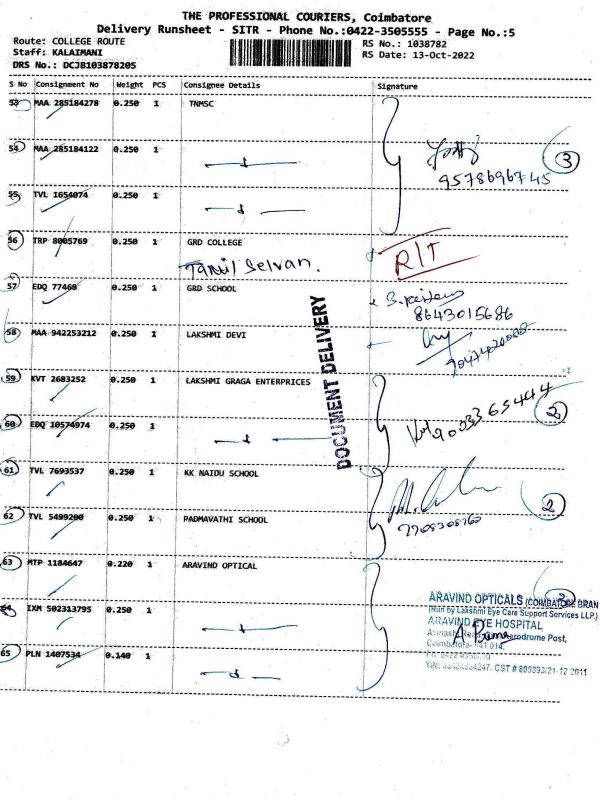 THE PROFESSIONAL COURIERS, Coimbatore
Delivery Runsheet - SITR - Phone No.:0422-3505555 - Page No.:5
Route: COLLEGE ROUTE
RS No.: 1038782
Staff: KALAIMANI
RS Date: 13-Oct-2022
DRS No.: DCJB103878205
S No Consignment No Weight PCS Consignee Details Signature
53 MAA 285184278 0.250 1 TNMSC
54 MAA 285184122 0.250 1
3
9578696745
55 TVL 1654074 0.250 1
56 TRP 8005769 0.250 1 GRD COLLEGE
Tamil Selvan. R/T
57 EDQ 77468 0.250 1 GRD SCHOOL
8643015686
58 MAA 942253212 0.250 1 LAKSHMI DEVI
DOCUMENT DELIVERY
59 KVT 2683252 0.250 1 LAKSHMI GRAGA ENTERPRICES
9003365444 2
60 EDQ 10574974 0.250 1
61 TVL 7693537 0.250 1 KK NAIDU SCHOOL
2
62 TVL 5499200 0.250 1 PADMAVATHI SCHOOL
7708308760
63 MTP 1184647 0.220 1 ARAVIND OPTICAL
ARAVIND OPTICALS (COIMBATORE BRAN
(Run by Lakshmi Eye Care Support Services LLP.)
64 IXM 502313795 0.250 1
ARAVIND EYE HOSPITAL
Aerodrome Post,
Coimbatore- 641 014.
65 PLN 1407534 0.140 1
CST # 805393/21-12-2011